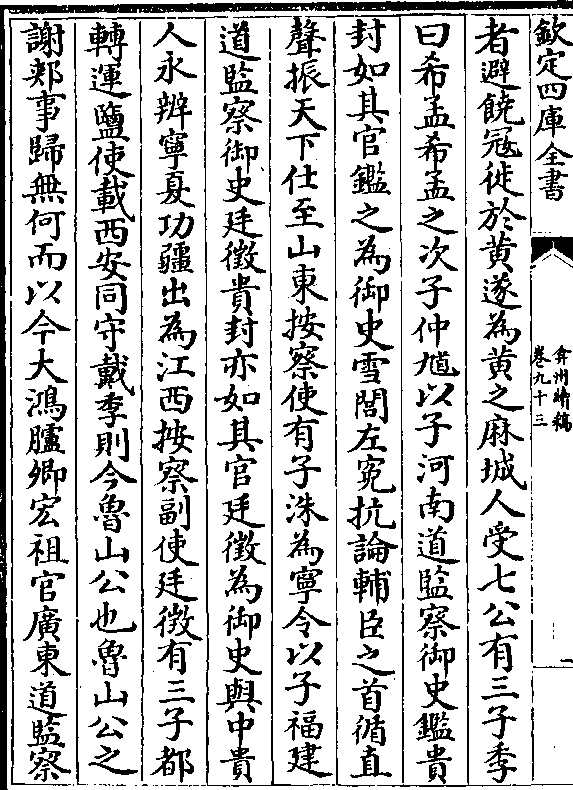 欽定四庫全書
弇州續稿
卷九十三
一
者避饒冦徙於黄遂為黄之麻城人受七公有三子季
曰希孟希孟之次子仲馗以子河南道監察御史鑑貴
封如其官鑑之為御史雪閻左寃抗論輔臣之首循直
聲振天下仕至山東按察使有子洙為寧令以子福建
道監察御史廷徵貴封亦如其官廷徵為御史與中貴
人永辨寧夏功疆出為江西按察副使廷徴有三子都
轉運鹽使載西安同守戴季則今魯山公也魯山公之
謝郟事歸無何而以今大鴻臚卿宏祖官廣東道監察